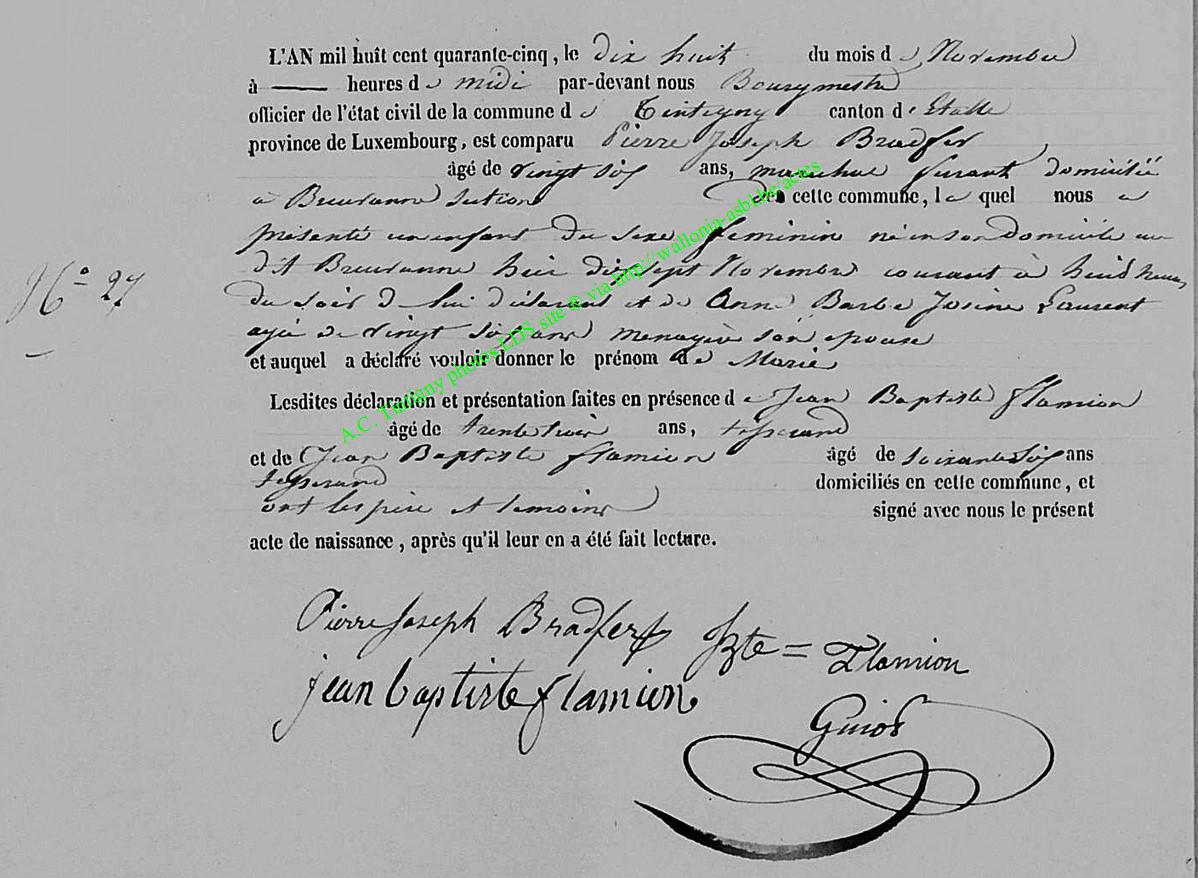 L'AN mil huit cent quarante-cinq, le dix huit du mois de Novembre
à — heures de midi par-devant nous Bourgmestre
officier de l'état civil de la commune de Tintigny canton d'Etalle
province de Luxembourg, est comparu Pierre Joseph Bradfer
âgé de vingt six ans, marechal ferant domicilié
à Breuvanne section de cette commune, le quel nous a
présenté un enfant du sexe feminin né en son domicile au
dit Breuvanne hier dix sept Novembre courant à huit heures
du soir de lui déclarant et de Anne Barbe Josine Laurent
agée de vingt six ans menagère son epouse
et auquel a déclaré vouloir donner le prénom de Marie
Lesdites déclaration et présentation faites en présence de Jean Baptiste flamion
âgé de trente trois ans, tisserand
et de Jean Baptiste flamion âgé de soixante six ans
tisserand domiciliés en cette commune, et
ont les père et temoins signé avec nous le présent
acte de naissance, après qu'il leur en a été fait lecture.
N° 27
Pierre Joseph Bradfer Jbte = Flamion
jean baptiste flamion
Guiot
A.C. Tintigny photos LDS site © via http://wallonia-asbl.be/actes